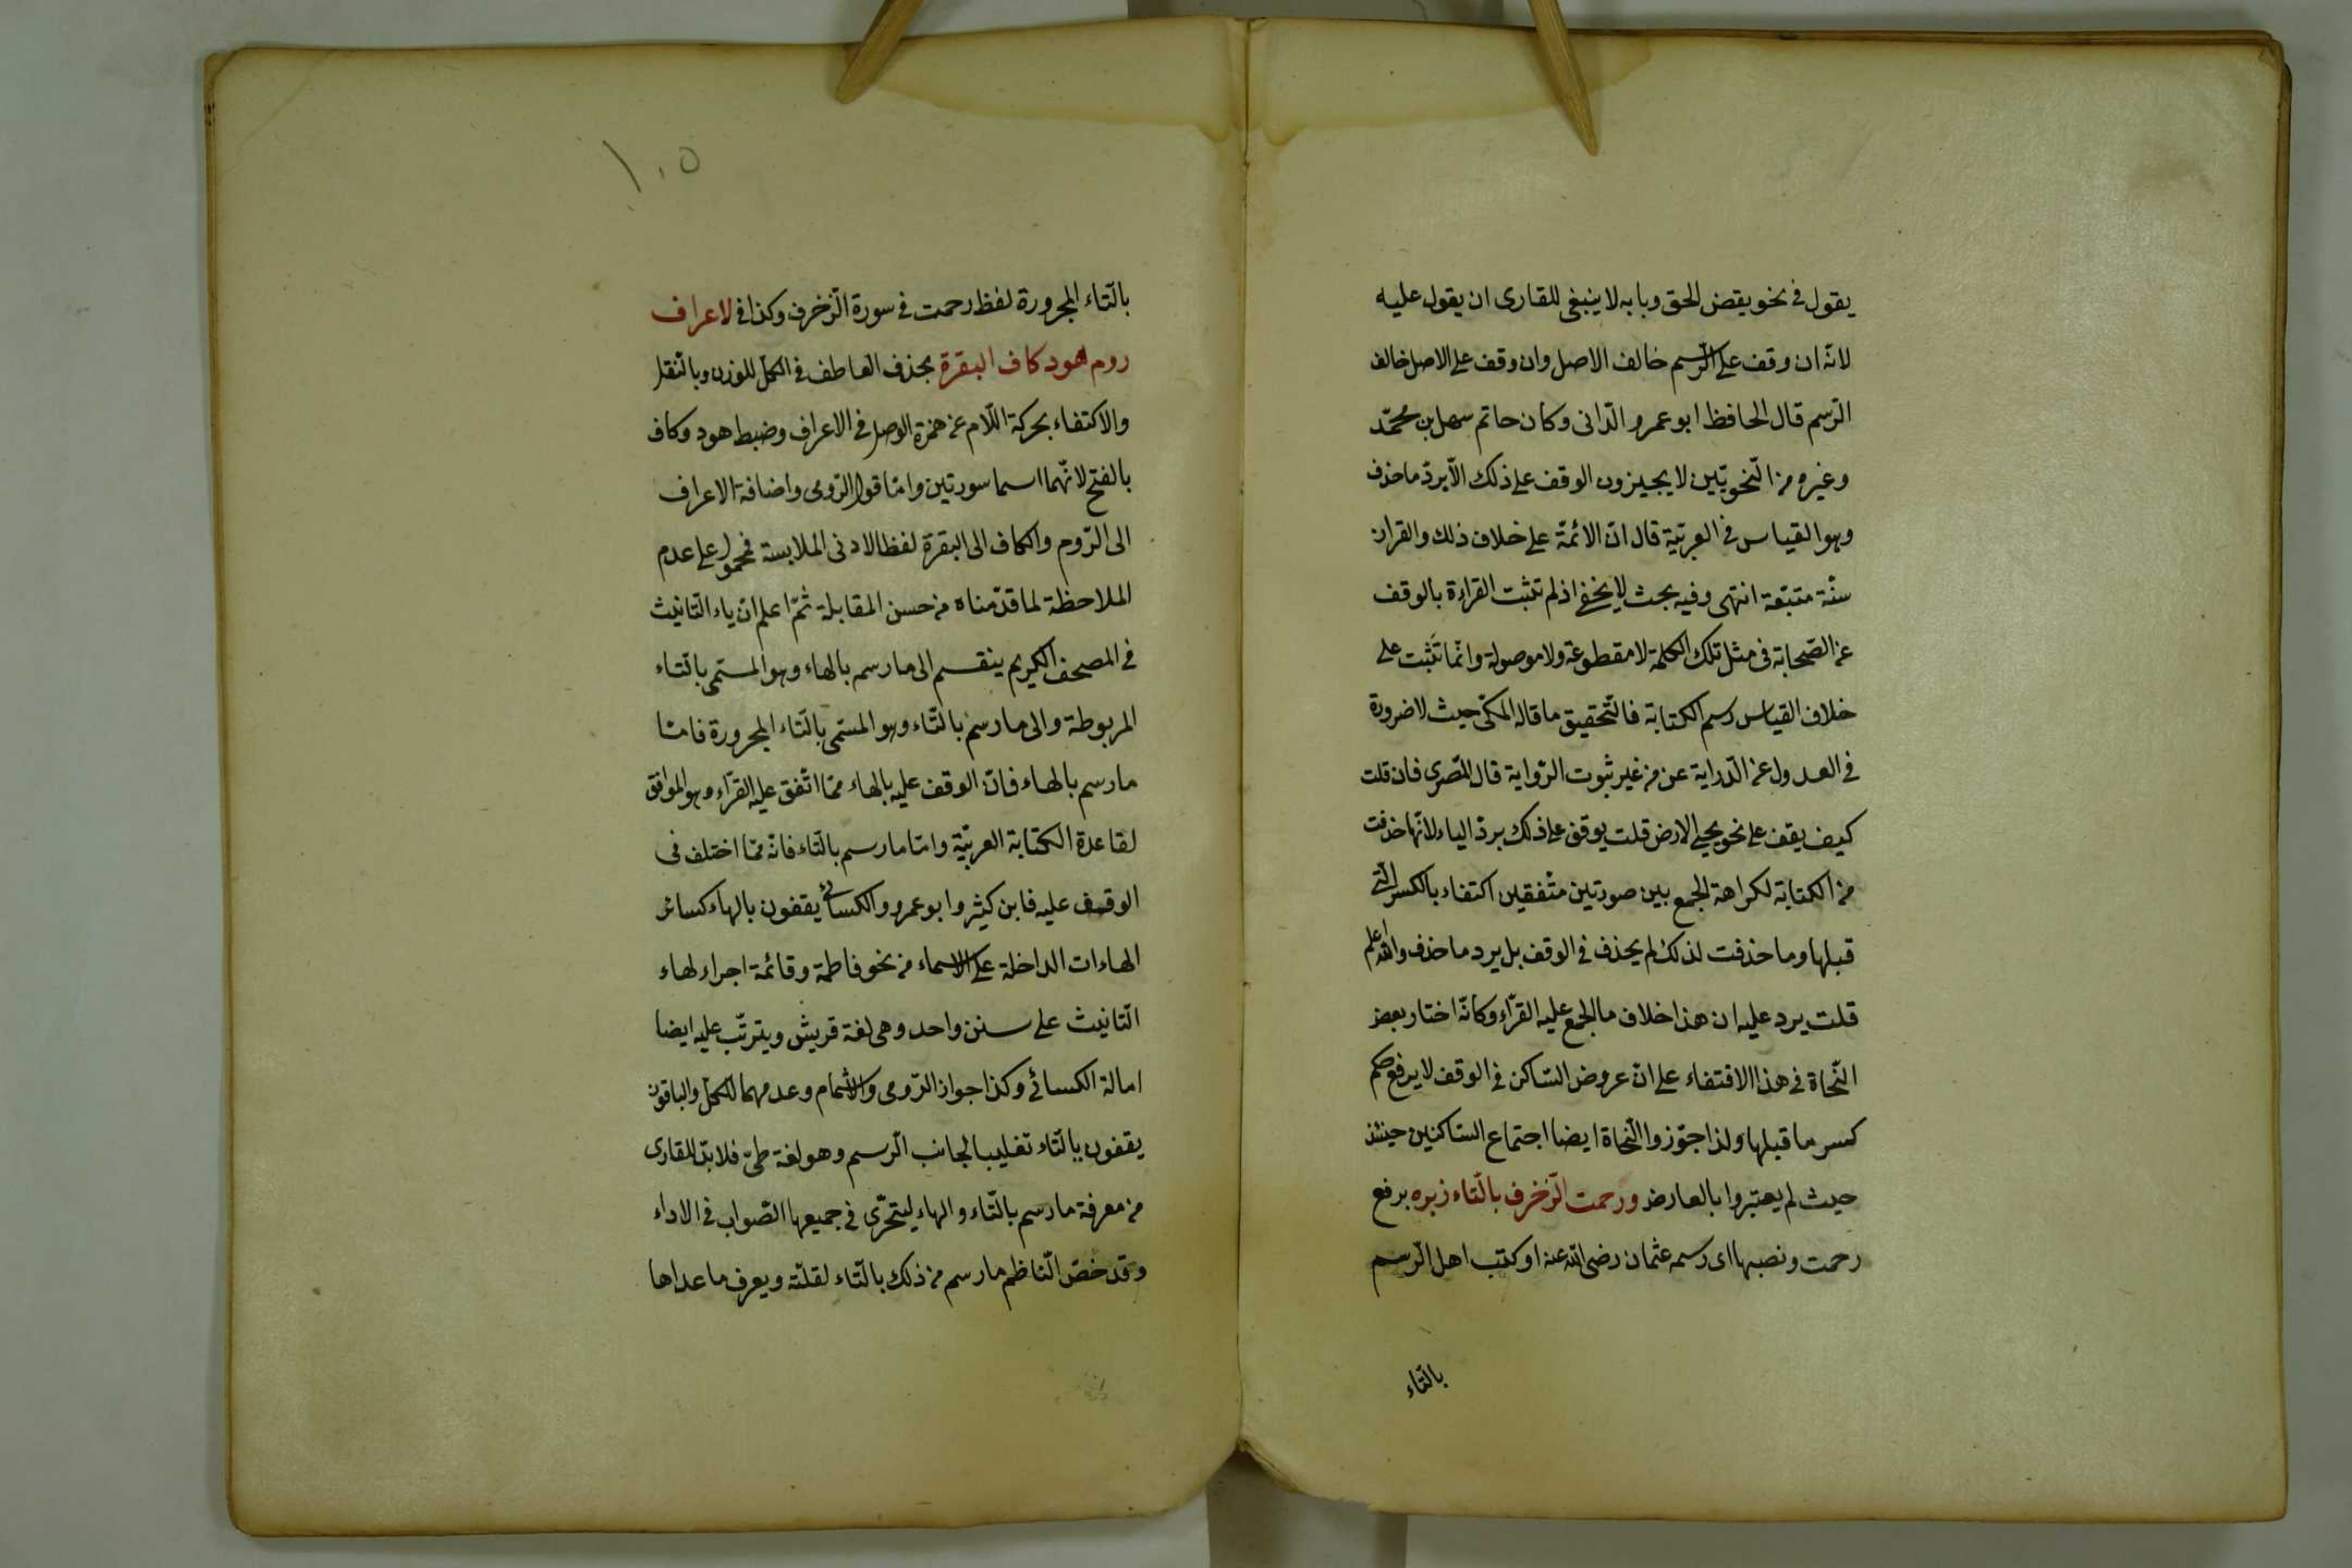 يقول فى نحو يقض الحق وبابه لا ينبغى للقارى ان يقول عليه
لانّه ان وقف على الرّسم خالف الاصل وان وقف على الاصل خالف
الرّسم قال الحافظ ابو عمرو الدّانى وكان حاتم سهل بن محمّد
وغيره من النّحويّين لا يجيزون الوقف على ذلك الّا بردّ ما حذف
وهو القياس فى العربيّة قال انّ الائمّة على خلاف ذلك والقراءة
سنّة متبّعة انتهى وفيه بحث لا يخفى اذ لم تثبت القراءة بالوقف
عن الصّحابة فى مثل تلك الكلمة لا مقطوعة ولا موصولة وانّما تثبت على
خلاف القياس رسم الكتابة فالتّحقيق ما قاله المكّى حيث لا ضرورة
فى العدول عن الدّراية عن من غير ثبوت الرّواية قال المصرى فان قلت
كيف يقف على نحو يحى الارض قلت يوقف على ذلك بردّ الياء لانّها حذفت
من الكتابة لكراهة الجمع بين صورتين متّفقين اكتفاء بالكسر الّتى
قبلها وما حذفت لذلك لم يحذف فى الوقف بل يرد ما حذف والله اعلم
قلت يرد عليه ان هذا خلاف ما اجمع عليه القرّاء وكانّه اختار بعض
النّحاة فى هذا الاقتفاء على انّ عروض السّاكن فى الوقف لا يرفع حكم
كسر ما قبلها ولذا جوّزوا النّحاة ايضا اجتماع السّاكنين حينئذ
حيث لم يعتبروا بالعارض ورحمت الزّخرف بالتّاء زبره برفع
رحمت ونصبها اى رسمه عثمان رضى الله عنه او كتب اهل الرّسم
بالتّاء
١٠٥
بالتّاء المجرورة لفظ رحمت فى سورة الزّخرف وكذا فى لاعراف
روم هود كاف البقرة بحذف العاطف فى الكلّ للوزن وبالنّقل
والاكتفاء بحركة اللّام عن همزة الوصل فى الاعراف وضبط هود وكاف
بالفتح لانّهما اسما سورتين وامّا قول الرّومى واضافة الاعراف
الى الرّوم والكاف الى البقرة لفظا لادنى الملابسة فمحمول على عدم
الملاحظة لما قدّمناه من حسن المقابلة ثمّ اعلم انّ ياء التّانيث
فى المصحف الكريم ينقسم الى ما رسم بالهاء وهو المسمّى بالتّاء
المربوطة والى ما رسم بالتّاء وهو المسمّى بالتّاء المجرورة فامّا
ما رسم بالهاء فانّ الوقف عليه بالهاء ممّا اتّفق عليه القرّاء وهو الموافق
لقاعدة الكتابة العربيّة وامّا ما رسم بالتّاء فانّه ممّا اختلف فى
الوقف عليه فابن كثير وابو عمرو والكسائى يقفون بالهاء كسائر
الهاءات الداخلة على الاسماء من نحو فاطمة وقائمة اجراء لهاء
التّانيث على سنن واحد وهى لغة قريش ويترتّب عليه ايضا
امالة الكسائى وكذا جواز الرّومى والاشمام وعدمهما للكلّ والباقون
يقفون بالتّاء تغليبا لجانب الرّسم وهو لغة طىّ فلا بدّ للقارى
من معرفة ما رسم بالتّاء والهاء ليتحرّى فى جميعها الصّواب فى الاداء
وقد خصّ النّاظم ما رسم من ذلك بالتّاء لقلّته ويعرف ما عداها